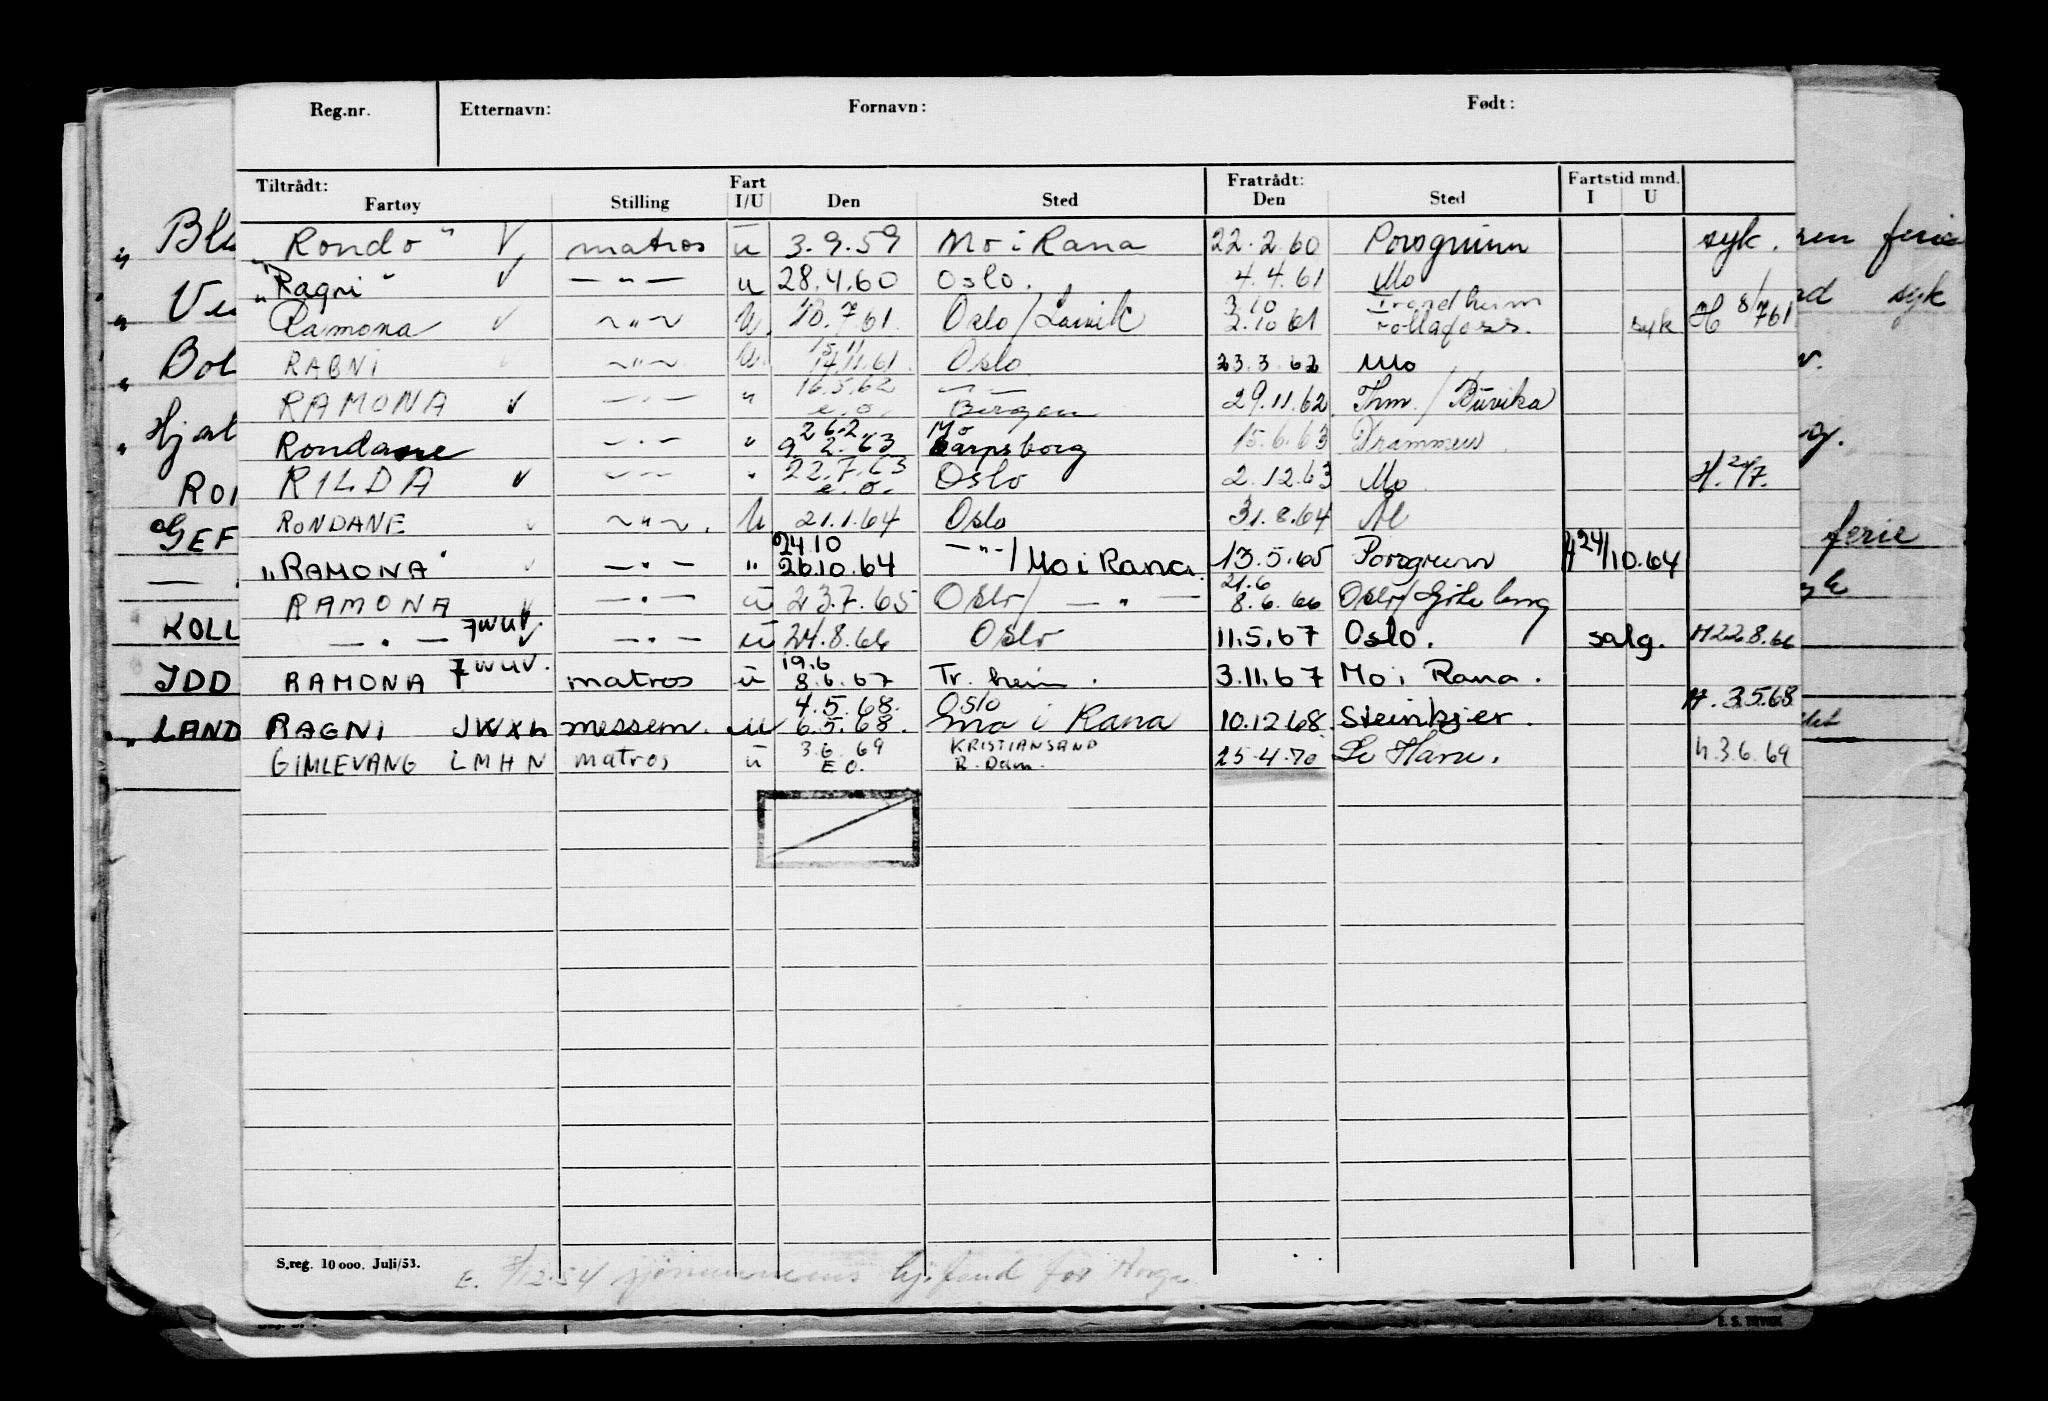 Reg.nr. Etternavn: Fornavn: Født:
Tiltrådt: Fart Fratrådt: Fartstid mnd.
Fartøy Stilling I/U Den Sted Den Sted I U
„Rondo" V matros u 3.9.59 Mo i Rana 22.2.60 Porsgrunn syk.
„Ragni" V — " — u 28.4.60 Oslo. 4.4.61 Mo
3.10 Trondheim
Ramona V ~ " ~ U. 10.7.61. Oslo/Larvik 2.10.61 Follafoss. syk H 8/7 61
15.11
RAGNI V ~ " ~ U. 14.11.61. Oslo. 23.3.62 Mo
16.5.62 — " —
RAMONA V — " — " e.o. Bergen 29.11.62 Thm./Buvika
26.2. Mo
Rondane — " — " 9.2.63 Sarpsborg 15.6.63 Drammen
22.7.63
RILDA V — " — " e.o. Oslo 2.12.63 Mo H. 20/7.
RONDANE V ~ " ~. U 21.1.64 Oslo 31.8.64 Ål
24.10
„RAMONA" V — " — " 26.10.64 — " —/Mo i Rana. 13.5.65 Porsgrunn H 24/10.64
21.6
RAMONA V — " — u 23.7.65 Oslo/ — " — 8.6.66 Oslo/Gøteborg
— " — 7WUV. V — " — u 24.8.66 Oslo 11.5.67 Oslo. salg. H 22.8.66
19.6
RAMONA 7WUV. matros u 8.6.67 Tr.heim. 3.11.67 Mo i Rana.
4.5.68. Oslo H. 3.5.68
RAGNI JWXh messem. u 6.5.68. Mo i Rana 10.12.68. Steinkjer.
3.6.69 KRISTIANSAND
GIMLEVANG LMHN matros u E.O. R.dam. 25.4.70 Le Havre. H. 3.6.69
S.reg. 10 000. Juli/53.
E. /12.54 sjømennens for Norge
„ Bl
„ Ve
„ Bol
„ Hjal
GEF
KOLL
IDD
„ LAND
ferie
syk
ferie